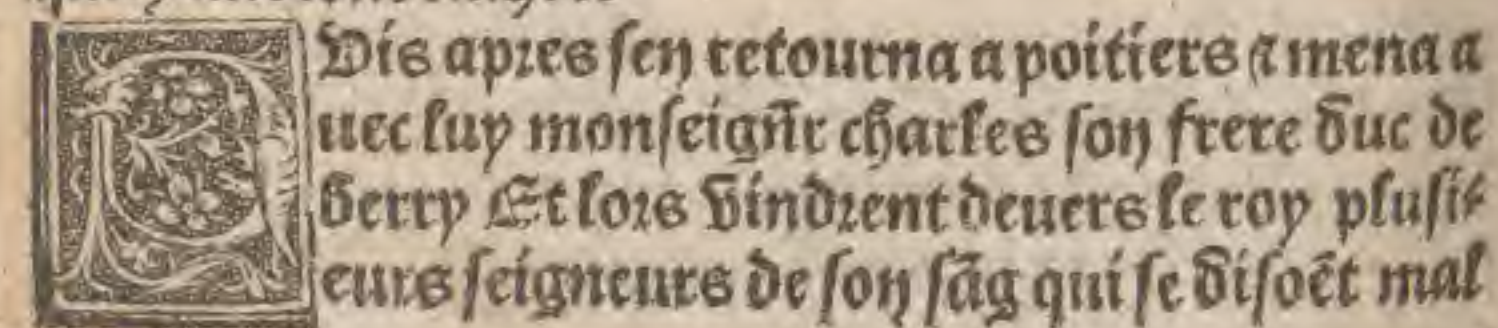 PUis apres sen retourna a poitiers ⁊ mena a
uec luy monseigñr charles son frere duc de
berry Et lors vindrent deuers le roy plusi⸗
eurs seigneurs de son sãg qui se disoẽt mal